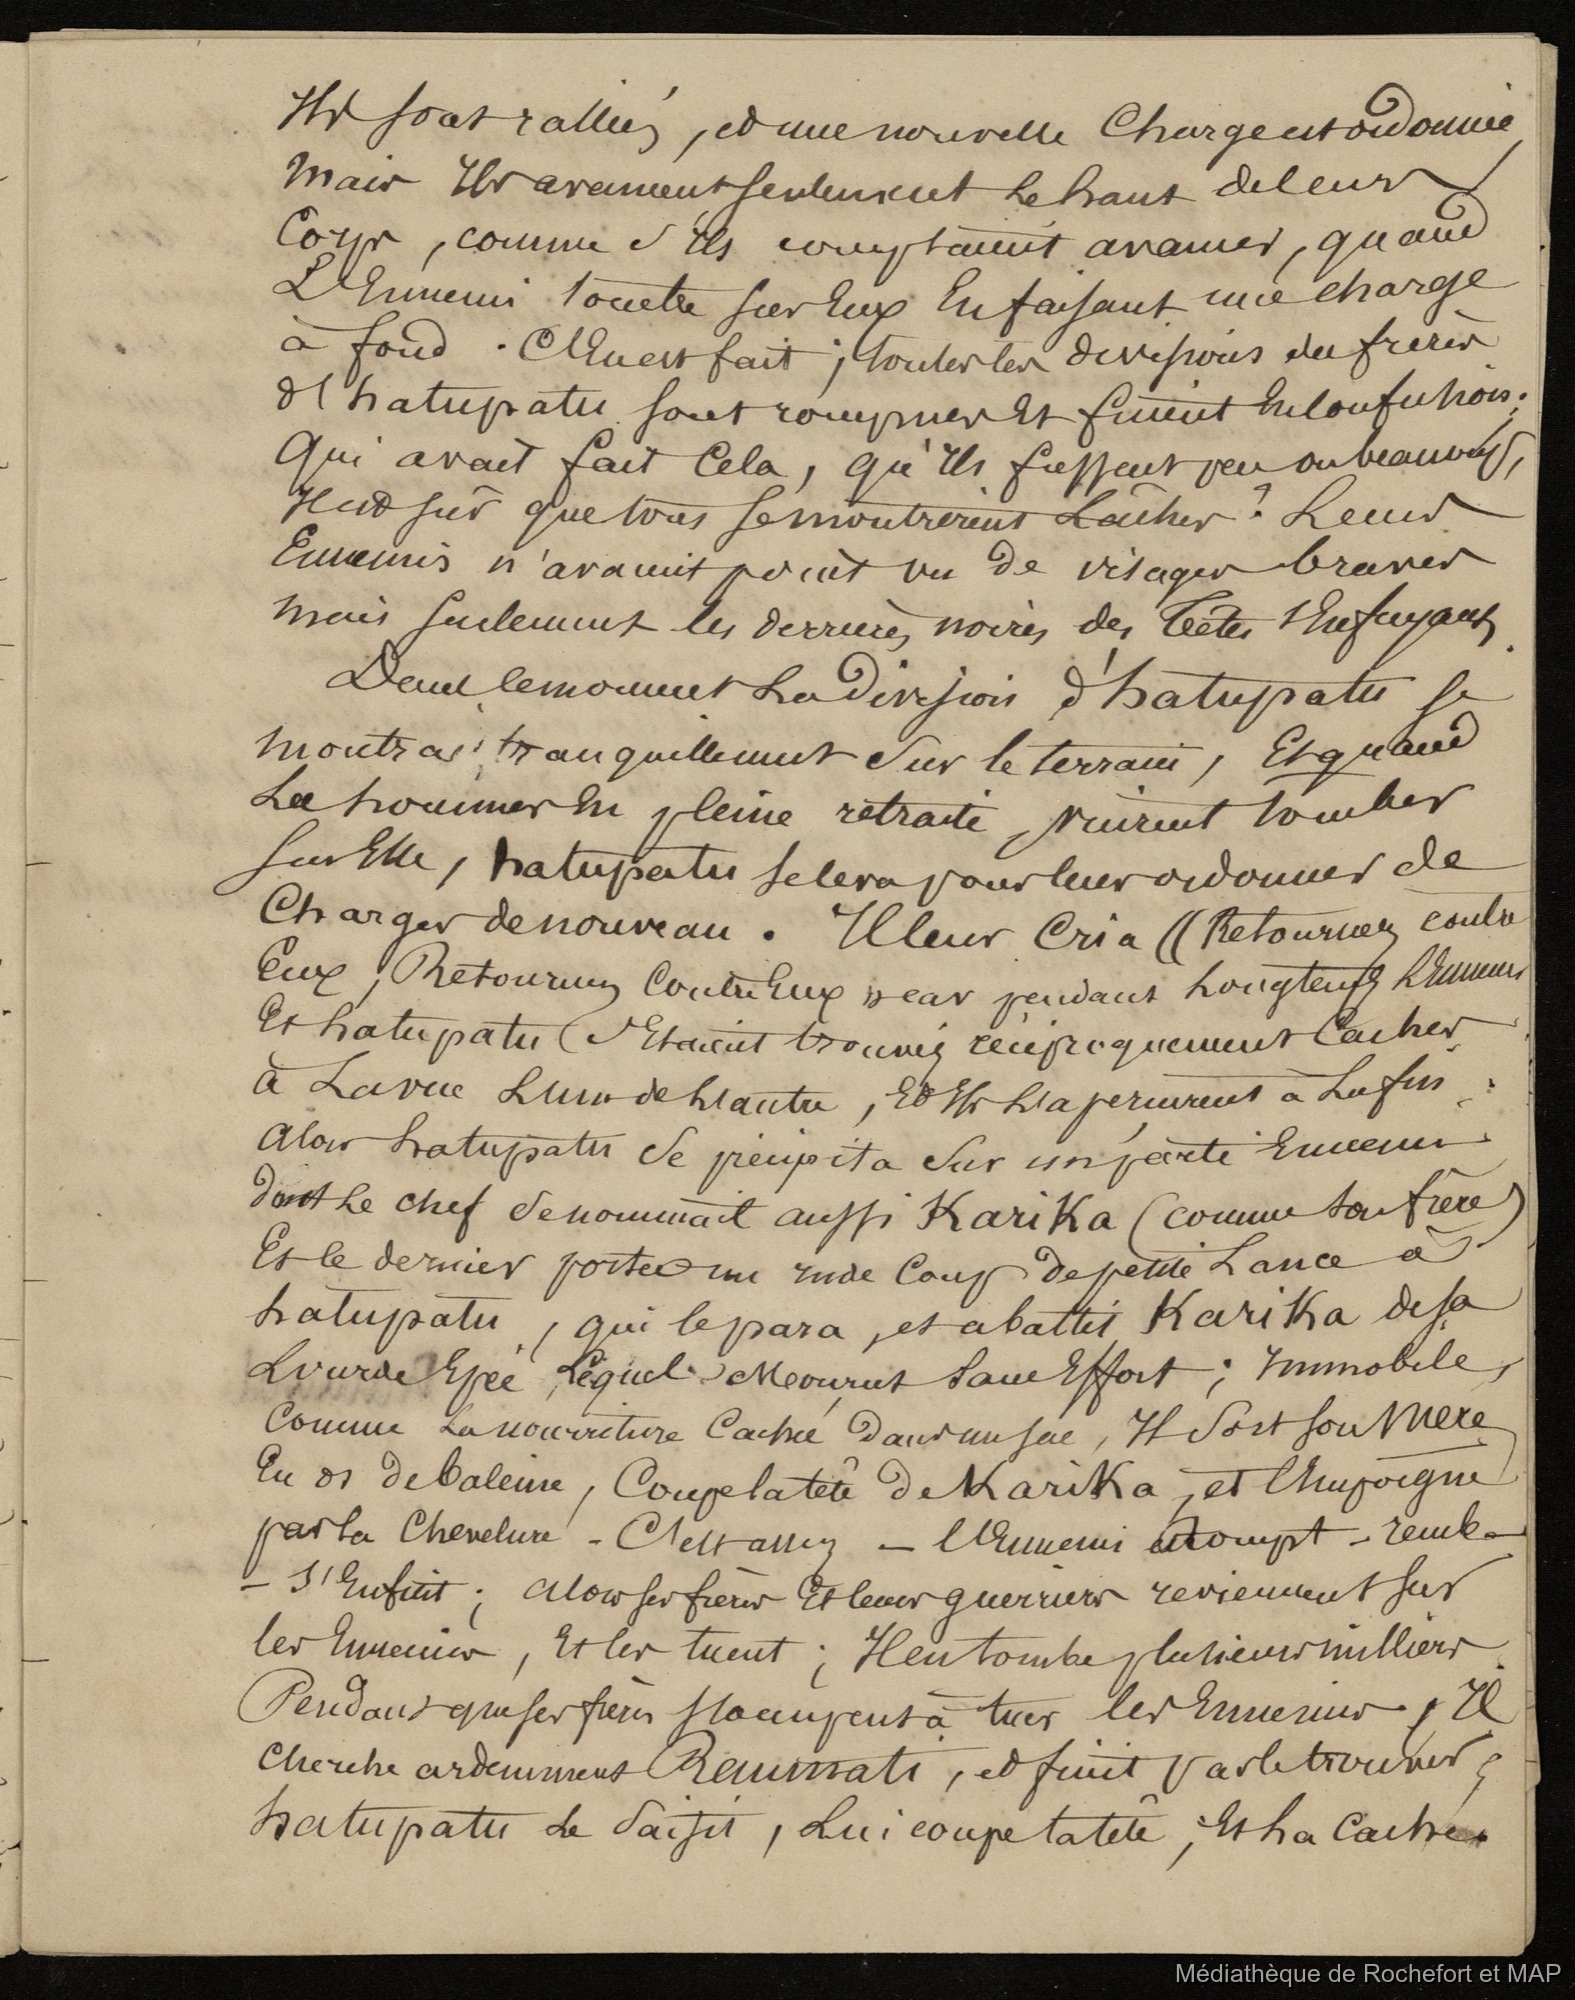 Ils sont ralliés, et une nouvelle Charge est ordonnée,
Mais Ils avancent seulement Le haut de leur
Corps, comme s'ils comptaient avancer, quand
L'Ennemi tombe sur Eux En faisant une charge
à fond. C'En est fait ; toutes les divisions des frères
d'hatupatu sont rompues Et fuient En Confusion.
Qui avait fait Cela, qu'Ils fussent peu ou beaucoup,
Il est sûr que tous se montrèrent Lâches ? Leurs
Ennemis n'avaient point vu de visages braves
mais seulement les derrières noirs des Têtes s'Enfuyant.
Dans le moment La Division d'hatupatu se
montrait tranquillement sur le terrain, Et quand
Les hommes En pleine retraite, vinrent tomber
sur Elle, hatupatu se leva pour leur ordonner de
Charger de nouveau. Il leur Cria (( Retournez contre
Eux, Retournez Contre Eux )) car pendant Longtemps L'Ennemi
Et hatupatu s'Etaient trouvés réciproquement Cachés
à La vue L'un de L'autre, Et Ils s'aperçurent à La fin.
Alors hatupatu se précipita sur un parti Ennemi
dont Le chef se nommait aussi KariKa (comme son frère)
Et le dernier porta un rude Coup de petite Lance à
hatupatu, qui le para, et abattit KariKa de sa
Lourde Epée, Lequel Mourut Sans Effort ; Immobile,
Comme La nourriture Cachée Dans un sac, Il Sort son Mere
En os de baleine, Coupe la tête de KariKa, et l'Empoigne
par la Chevelure - C'est assez - L'Ennemi rompt - tombe
- S'Enfuit ; Alors ses frères Et leurs guerriers reviennent sur
les Ennemis, Et les tuent ; Il en tombe plusieurs milliers
Pendant que ses frères s'occupent à tuer les Ennemis, Il
Cherche ardemment Raumati, et finit par le trouver ;
hatupatu Le Saisit, Lui coupe la tête, Et La Cache.
Médiathèque de Rochefort et MAP